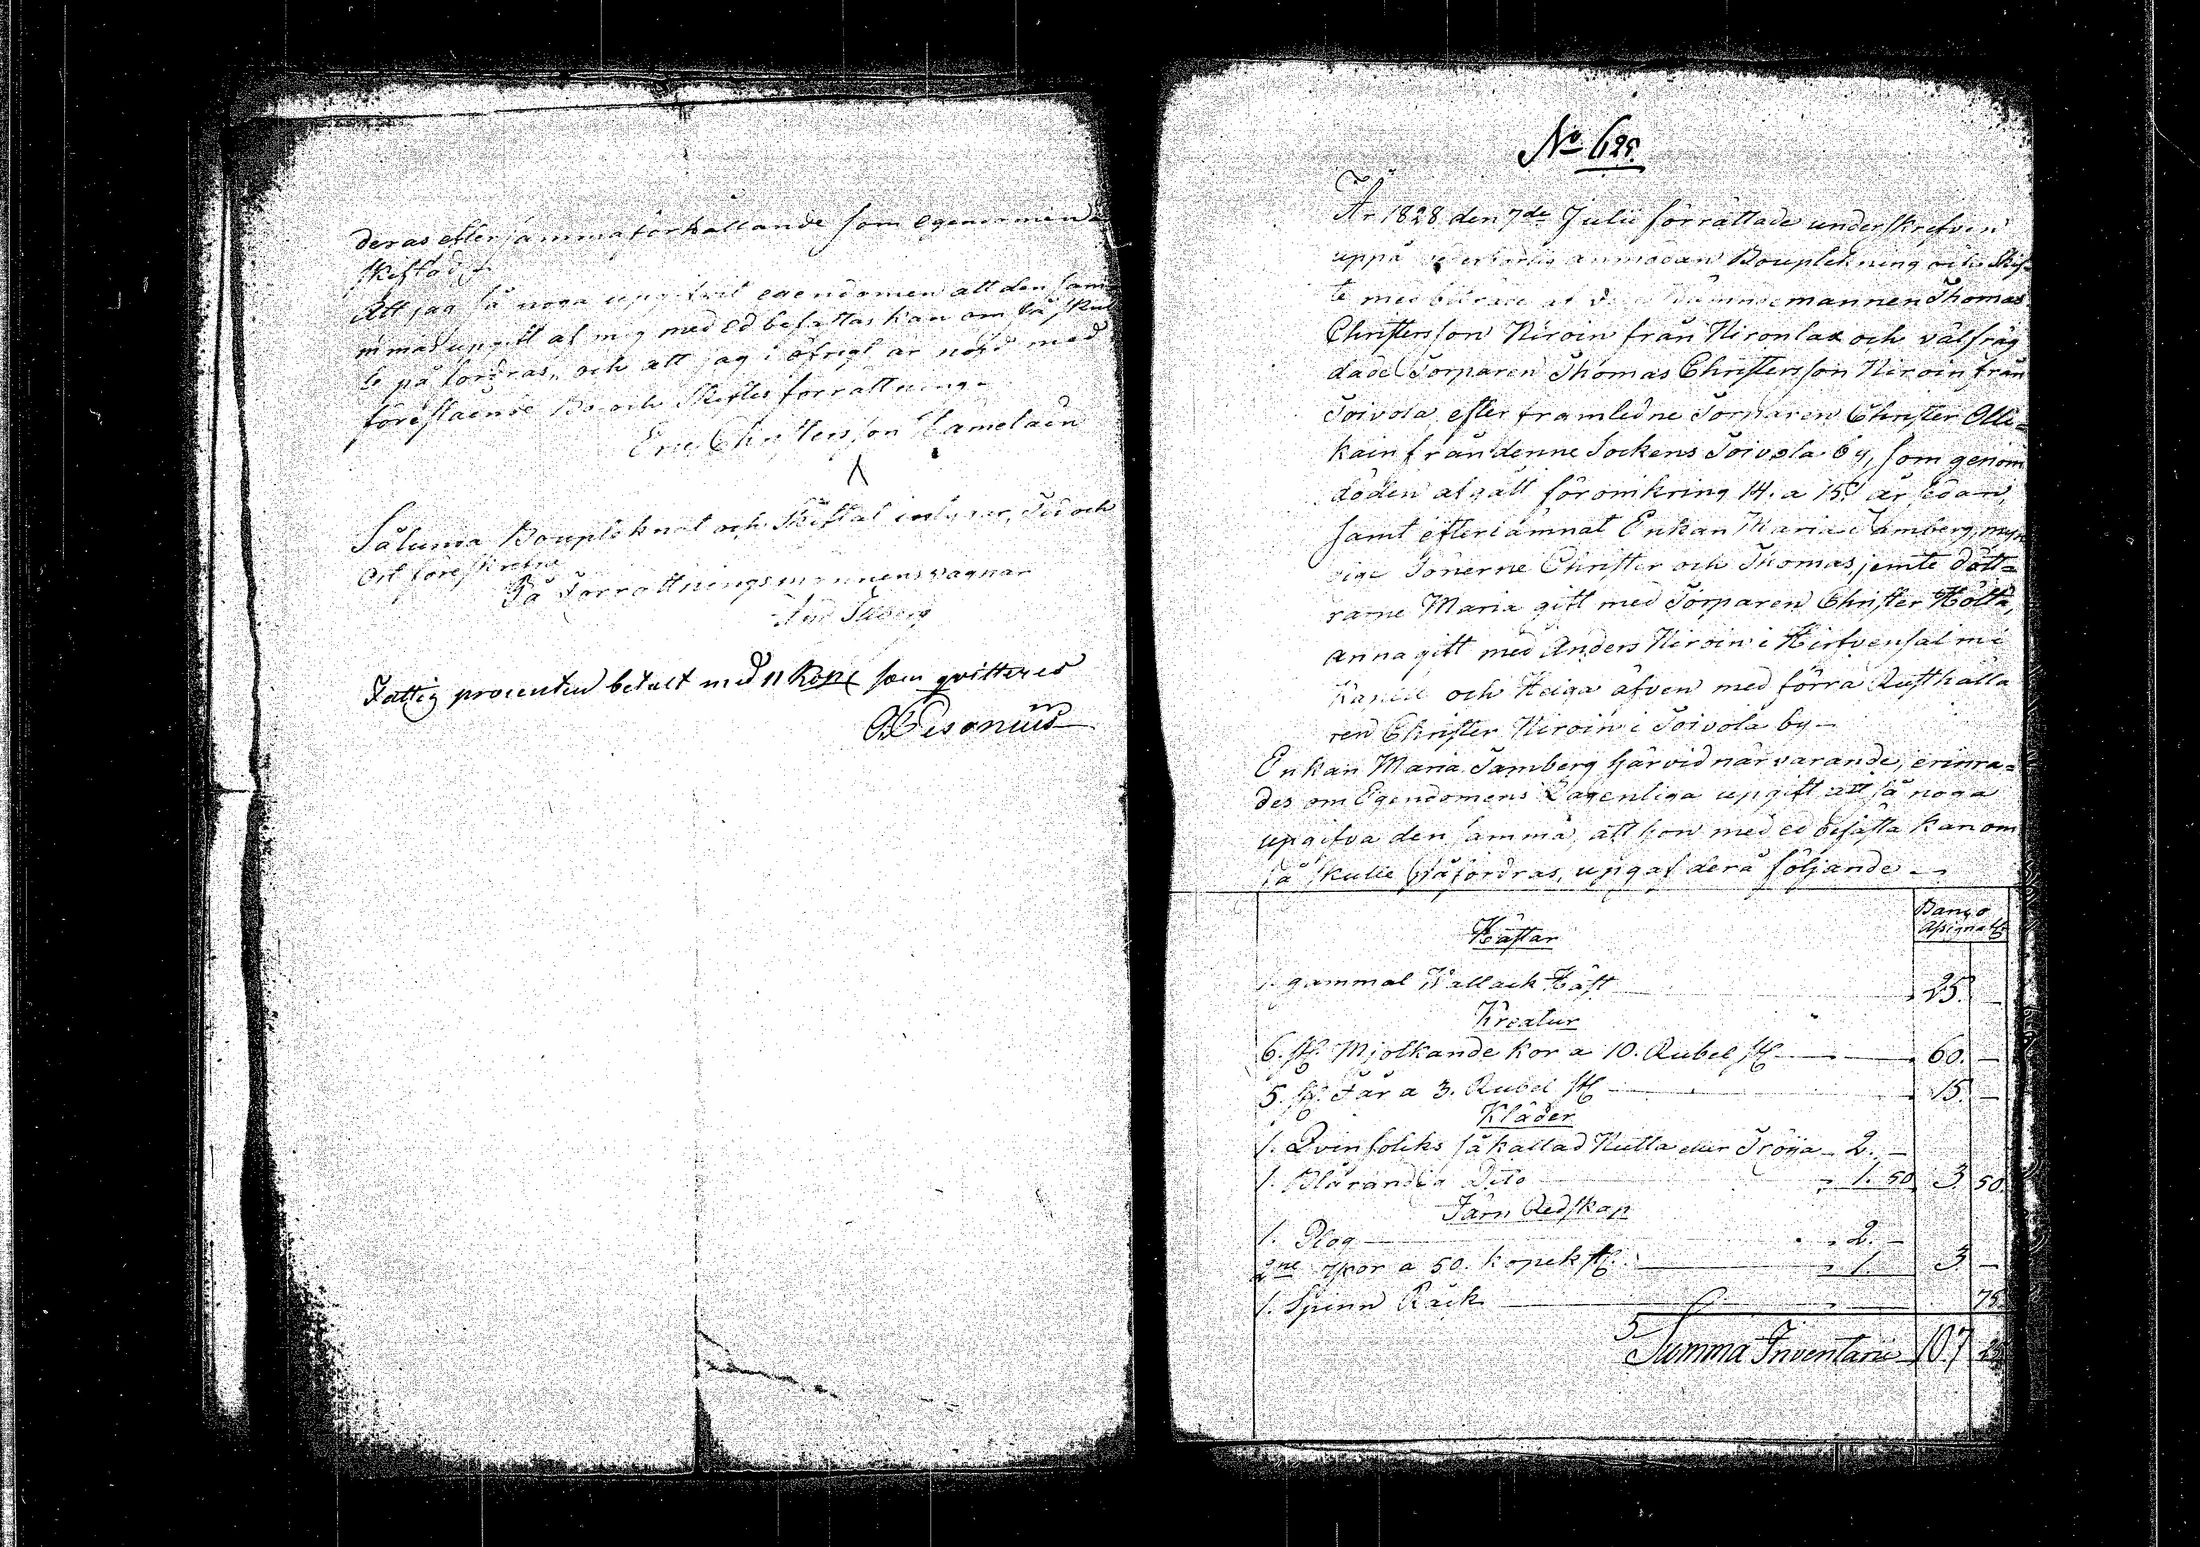 deras efter samma förhållande som egendomen
skiftad,
Att jag så noga upgifvit egendomen att den sam
ma upgift af mig med ed befästas kan om så skul
le påfordras, och att jag i öfrigt är nöjd med
förestående Bo och Skiftes förrättning
Eric Christersson Hämeläin
Såluma Boupteknat och Skiftat intygar, Tid och
Ort föreskrefne
På Förrättningsmannens vägnar
Fattig procenten betalt med 11 Kop som qvitteras
No 625.
År 1828 den 7de Julii förrättade underskrefven
uppå anmodan Boupteckning och Skif=
te med biträde af mannen Thomas
Christersson Hiroin från Hironlax och välfräg
dade Torparen Thomas Christersson Hiroin från
Toivola, efter framledne Torparen Christer Olli=
kain från denne Sockens Toivola by, som genom
döden afgått för omkring 14. a 15. år sedan,
samt efterlämnat Enkan Maria Tamberg, myn
dige Sönerne Christer och Thomas, jemte dött=
rarne Maria gift med Torparen Christer Höltä,
Anna gift med Anders Hiroin i Hirfvensalmi
och Helga äfven med förra Rusthålla
ren Christer Hiroin i Toivola by
Enkan Maria Tamberg härvid närvarande, erinra=
des om Egendomens Lagenliga upgift att så noga
upgifva den samma, att hon med ed befästa kan om
så skulle påfordras, upgaf derå följande
Banco
Assignat
Hästar
1. gammal Wallack Häst 25. —
Kreatur
6. st. Mjölkande Kor a 10. Rubel st 60. —
5. st. Får a 3. Rubel st 15. —
Kläder
1. Qvinfolks så kallad Kutta eller Tröija 2. —
1. Blårandig Dito 1. 50 3. 50.
Järn Redskap
1. Plog 2. —
2ne Yxor a 50. kopek st 1. 3. —
1. Spinn Råck 75.
Summa Inventarii 107 25